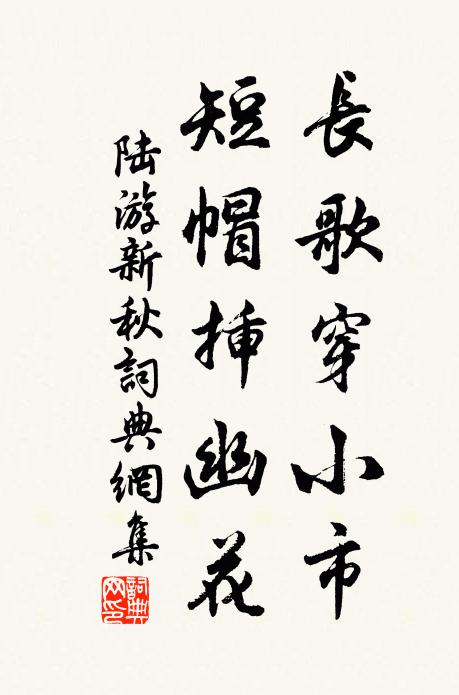 長歌穿小市
短帽插幽花
陆游新秋詞典網集
詞典网印